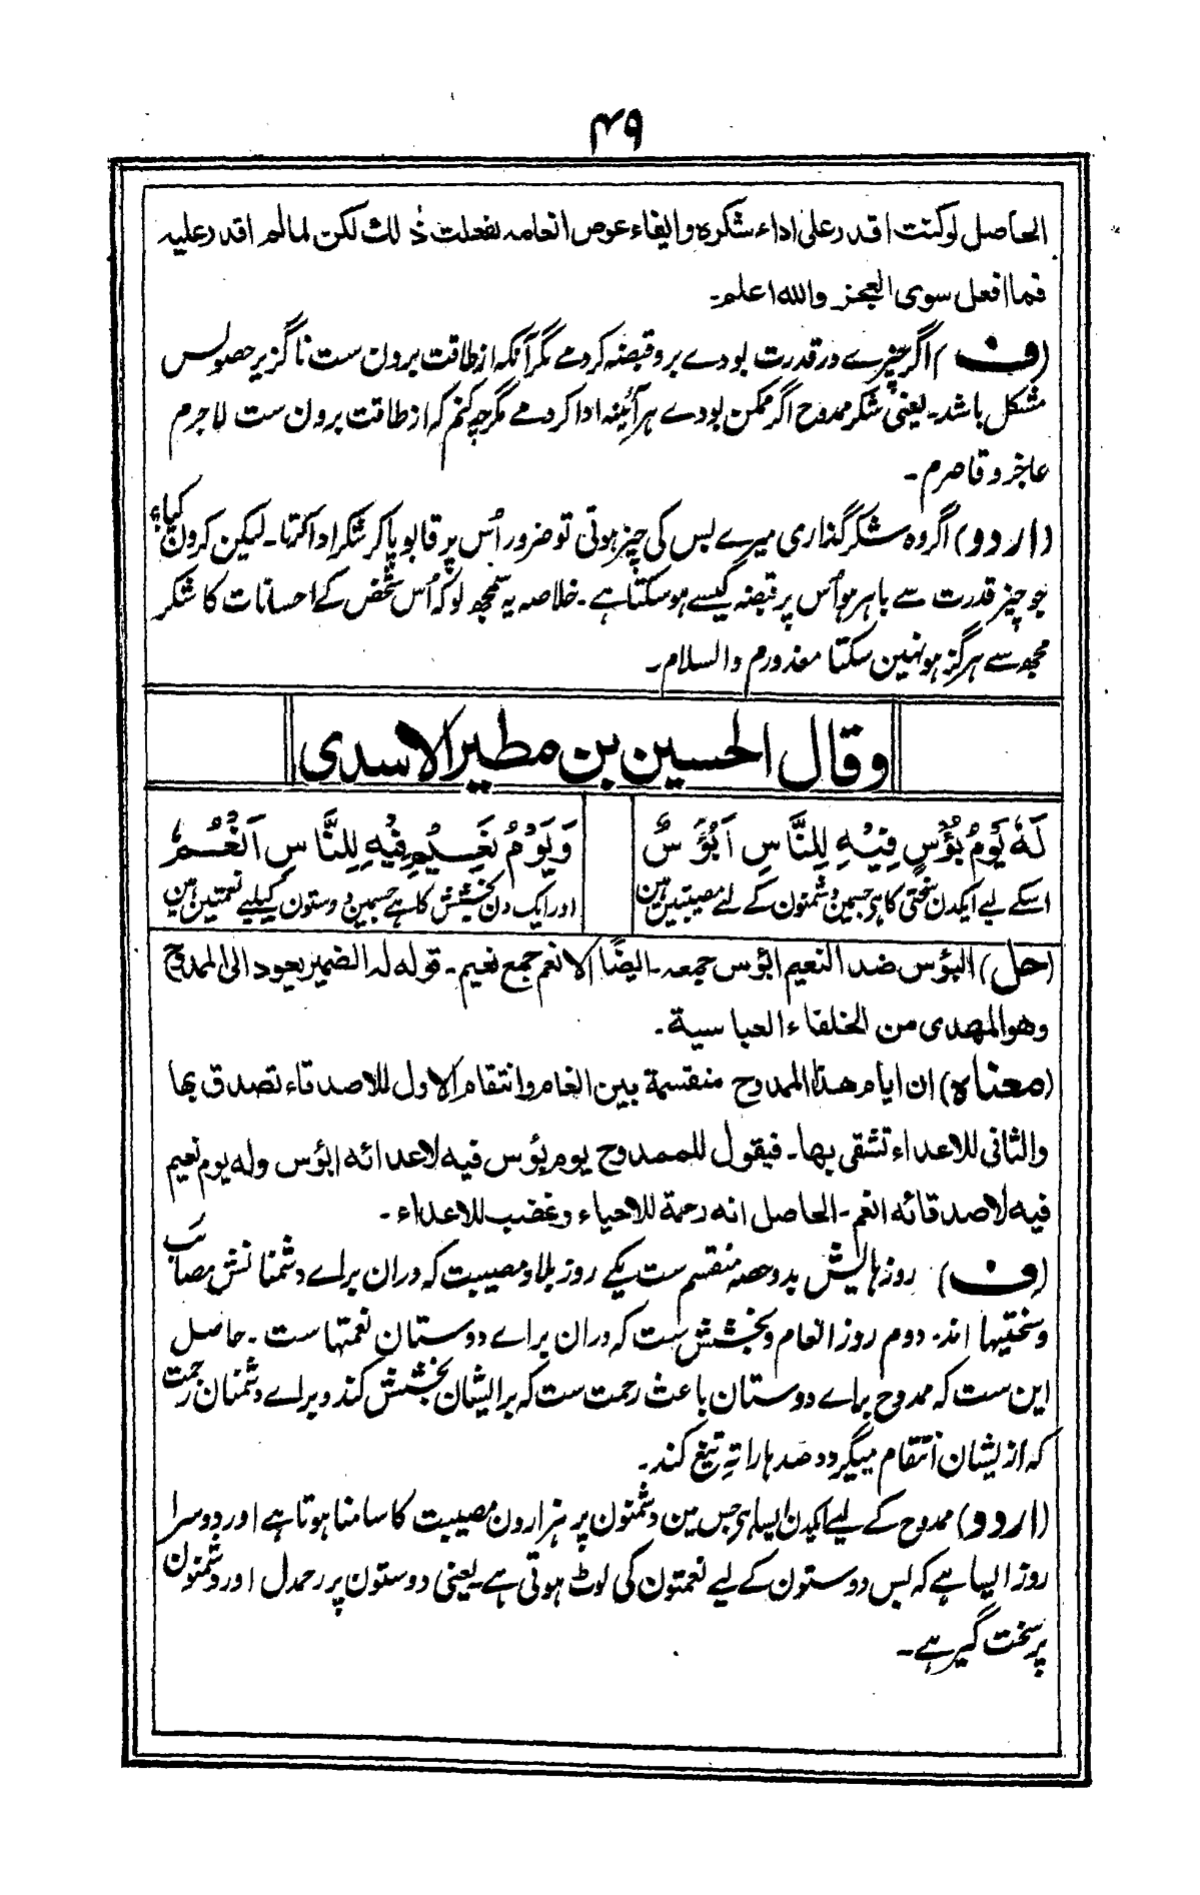 ۴۹
الحاصل لو كنت اقدر على اداء شكره وايفاء عوض انعامه لفعلت ذٰلك لكن لما لم اقدر عليه
فما افعل سوى العجز والله اعلم۔
(ف) اگر چیزے در قدرت بودے برو قبضہ کردمے مگر آنکہ از طاقت برون ست ناگزیر حصولس
مشکل باشد۔ یعنی شکر ممدوح اگر ممکن بودے ہر آئینہ ادا کردمے مگر چہ کنم کہ از طاقت برون ست لاجرم
عاجز و قاصرم۔
(اردو) اگر وہ شکر گذاری میرے بس کی چیز ہوتی تو ضرور اُس پر قابو پا کر شکر ادا کرتا۔ لیکن کرون کیا؟
جو چیز قدرت سے باہر ہو اُس پر قبضہ کیسے ہو سکتا ہے۔ خلاصہ یہ سمجھ لو کہ اُس شخص کے احسانات کا شکر
مجھ سے ہرگز ہو نہین سکتا معذورم والسلام۔
وقال الحسين بن مطير الاسدى
لَهٗ يَوْمُ بُؤْسٍ فِيْهِ لِلنَّاسِ اَبْؤُسٌ
وَيَوْمُ نَعِيْمٍ فِيْهِ لِلنَّاسِ اَنْعُمٌ
اسکے لیے ایکدن سختی کا ہے جسمین دشمنون کے لئے مصیبتین ہین
اور ایک دن بخشش کا ہے جسمین دوستون کیلیے نعمتین ہین
(حل) البؤس ضد النعيم ابؤس جمعه۔ ايضًا الانعم جمع نعيم۔ قوله له الضمير يعود الى الممدوح
وهو المهدى من الخلفاء العباسية۔
(معناه) ان ايام هذا الممدوح منقسمة بين انعام وانتقام الاول للاصدقاء تصدق بها
والثانى للاعداء تشقى بها۔ فيقول للممدوح يوم بؤس فيه لاعدائه ابؤس وله يوم نعيم
فيه لاصدقائه انعم۔ الحاصل انه رحمة للاحياء وغضب للاعداء۔
(ف) روزہایش بدو حصہ منقسم ست یکے روز بلا و مصیبت کہ دران براے دشمنانش مصائب
و سختیہا اند۔ دوم روز انعام و بخشش ست کہ دران براے دوستان نعمتہاست۔ حاصل
این ست کہ ممدوح براے دوستان باعث رحمت ست کہ بر ایشان بخشش کند و براے دشمنان زحمت
کہ ازیشان انتقام میگیرد و صدہا را تہِ تیغ کند۔
(اردو) ممدوح کے لیے ایکدن ایسا ہو جس مین دشمنون پر ہزارون مصیبت کا سامنا ہوتا ہے اور دوسرا
روز ایسا ہے کہ بس دوستون کے لیے نعمتون کی لوٹ ہوتی ہے۔ یعنی دوستون پر رحمدل اور دشمنون
پر سخت گیر ہے۔